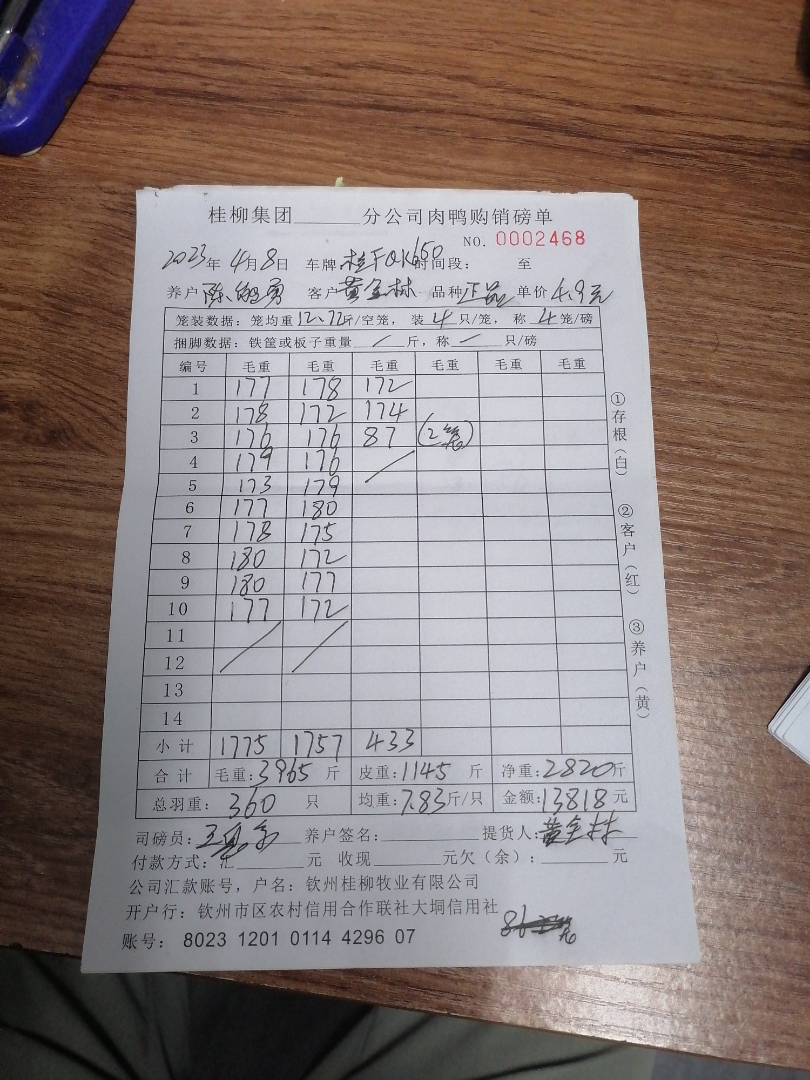 桂柳集团______分公司肉鸭购销磅单
NO. 0002468
2023年4月8日 车牌:桂FQK650时间段: 至
养户 陈 勇 客户 黄金林 品种 正品 单价 4.9元
笼装数据:笼均重12.72斤/空笼,装4只/笼,称4笼/磅
捆脚数据:铁筐或板子重量 / 斤,称 — 只/磅
编号 毛重 毛重 毛重 毛重 毛重 毛重
1 177 178 172
2 178 172 174
3 176 176 87 (2笼)
4 179 176 /
5 173 179
6 177 180
7 178 175
8 180 172
9 180 177
10 177 172
11 / /
12
13
14
小计 1775 1757 433
合计 毛重:3965 斤 皮重:1145 斤 净重:2820斤
总羽重: 360 只 均重:7.83斤/只 金额:13818元
司磅员: 养户签名:________提货人:黄金林
付款方式:汇______元 收现______元欠(余):______元
公司汇款账号,户名:钦州桂柳牧业有限公司
开户行:钦州市区农村信用合作联社大垌信用社
账号: 8023 1201 0114 4296 07
①存根(白)
②客户(红)
③养户(黄)